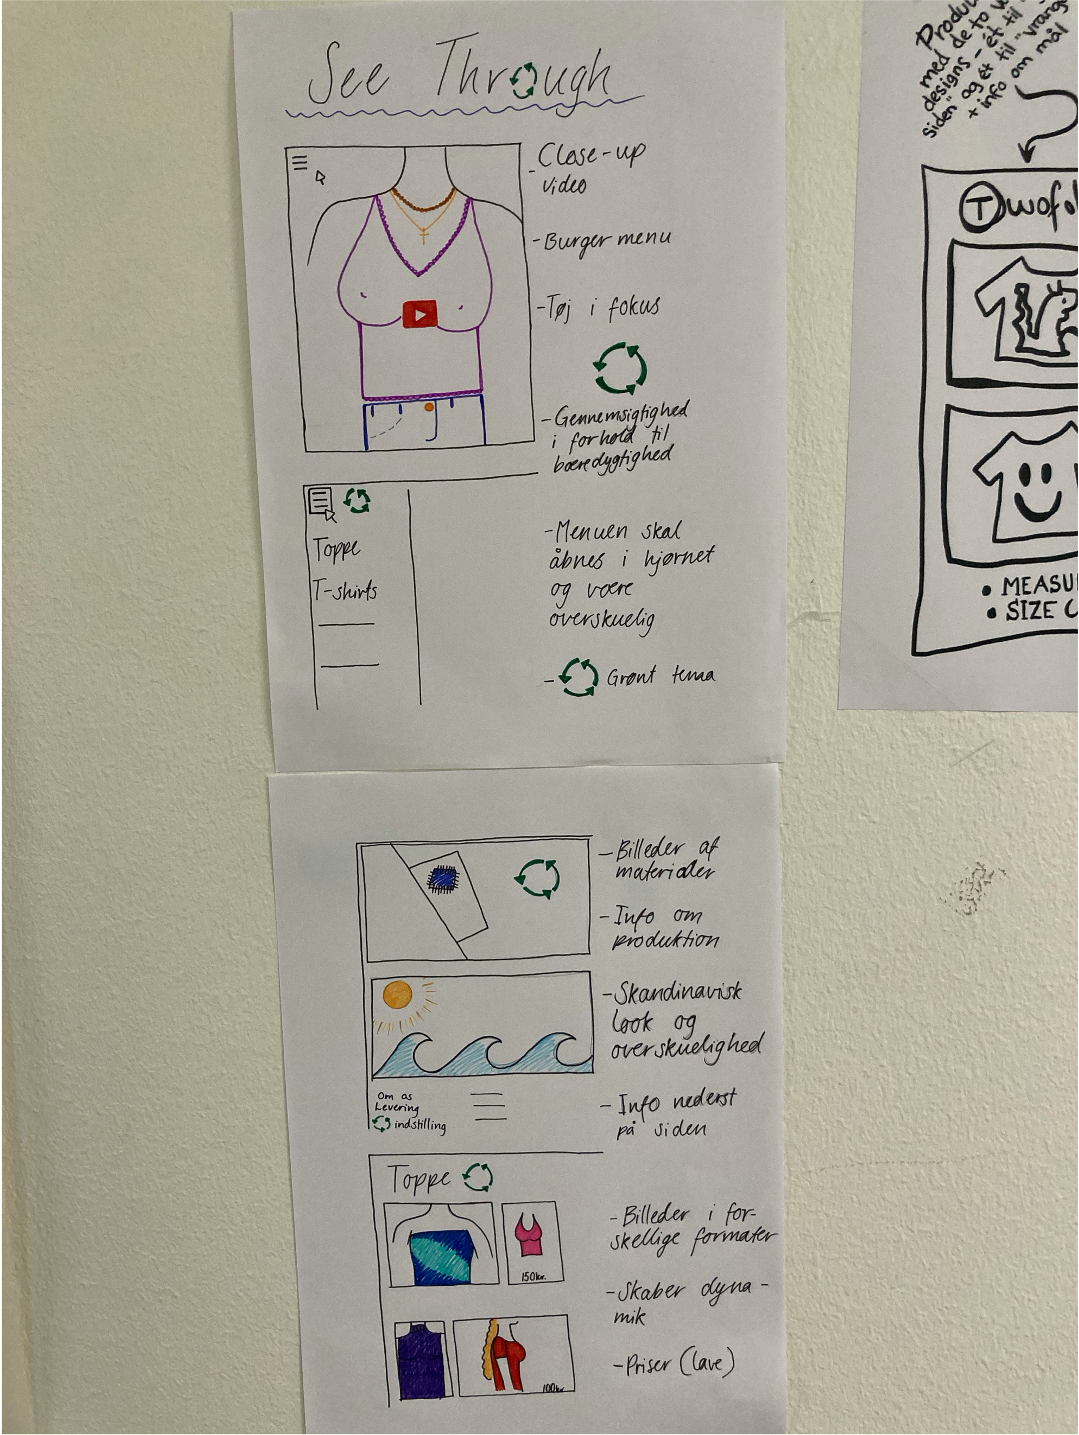 See Through
Close-up
video
-Burger menu
-Tøj i fokus
-Gennemsigtighed
i forhold til
bæredygtighed
Toppe
T-shirts
-Menuen skal
åbnes i hjørnet
og være
overskuelig
- Grønt tema
-Billeder af
materialer
-Info om
produktion
-Skandinavisk
look og
overskuelighed
Om os
Levering
indstilling
- Info nederst
på siden
Toppe
150kr.
100kr
-Billeder i for-
skellige formater
-Skaber dyna-
mik
-Priser (lave)
Produk
med de to
designs - ét til
siden" og ét til "vrang
+ info om mål
Twofol
• MEASU
• SIZE C